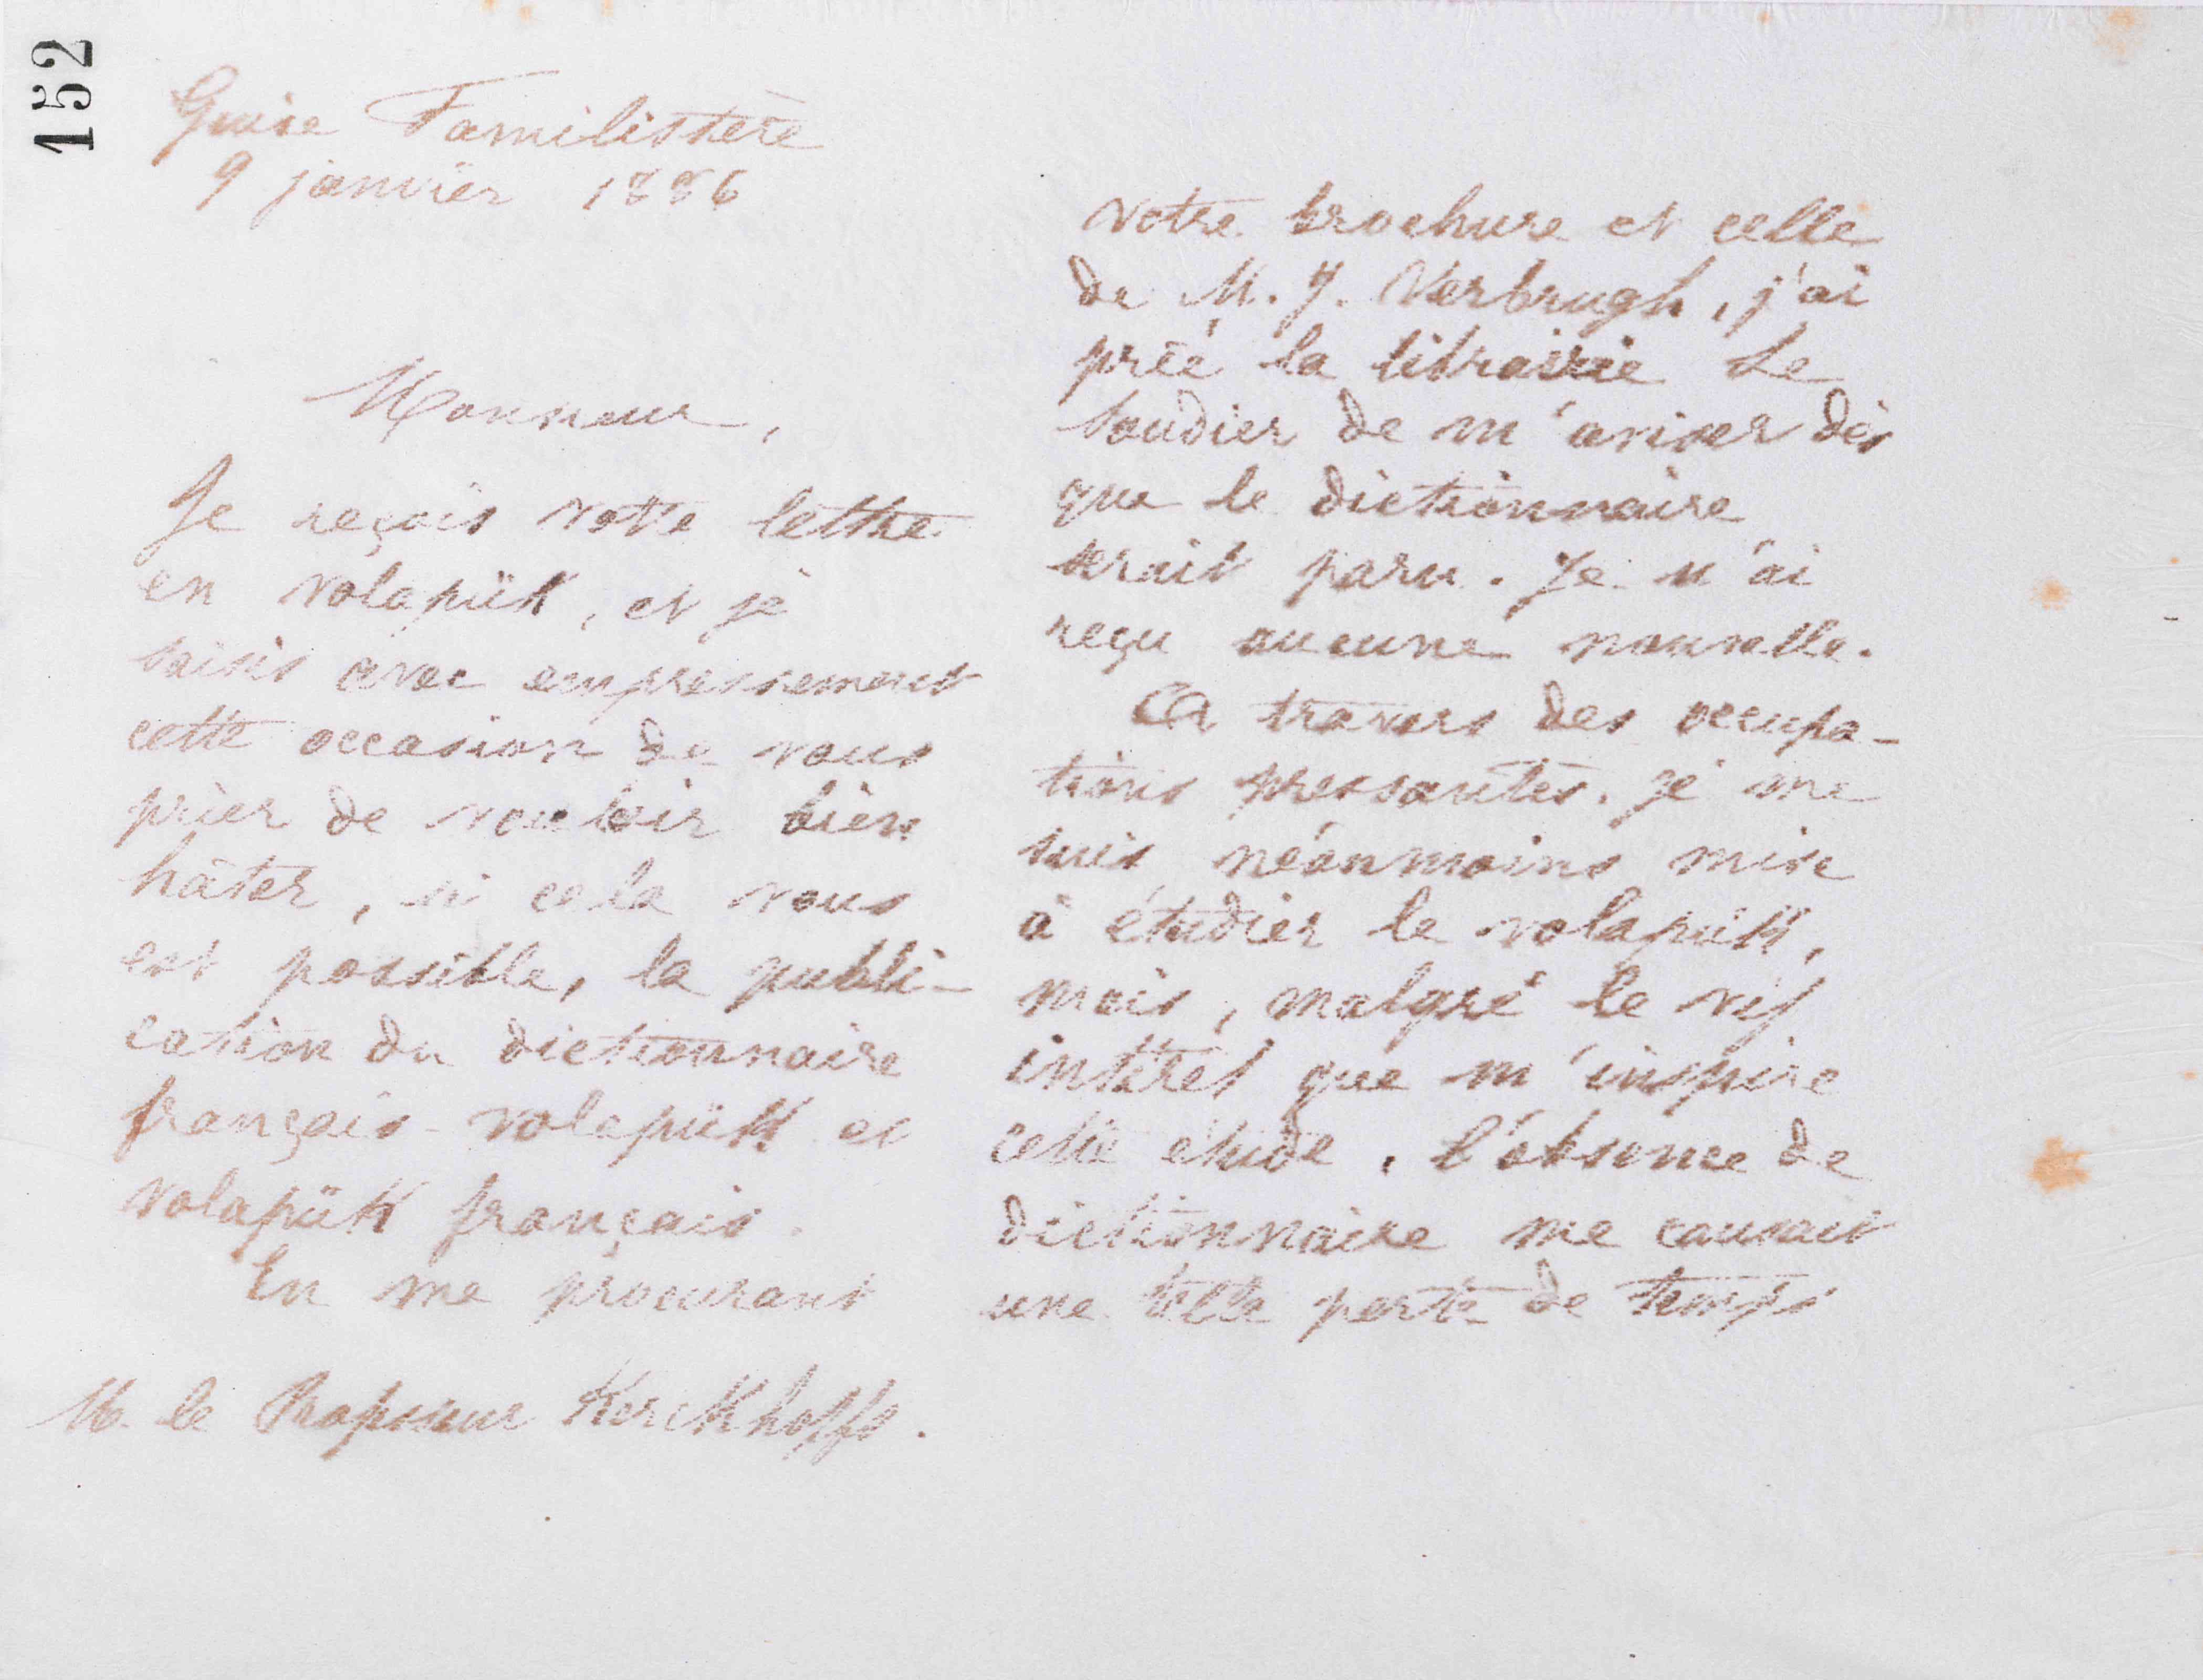 152
Guise Familistère
9 janvier 1886
Monsieur,
Je reçois votre lettre
en volapük, et je
saisis avec empressement
cette occasion de vous
prier de vouloir bien
hâter, si cela vous
est possible, la publi-
cation du dictionnaire
français-volapük et
volapük français.
En me procurant
M. le Professeur Kerckhoffs.
votre brochure et celle
de M. J. Verbrugh, j'ai
prié la librairie Le
Soudier de m'aviser dès
que le dictionnaire
serait paru. Je n'ai
reçu aucune nouvelle.
A travers des occupa-
tions pressantes, je me
suis néanmoins mise
à étudier le volapük,
mais, malgré le vif
intérêt que m'inspire
cette étude, l'absence de
dictionnaire me causait
une telle perte de temps